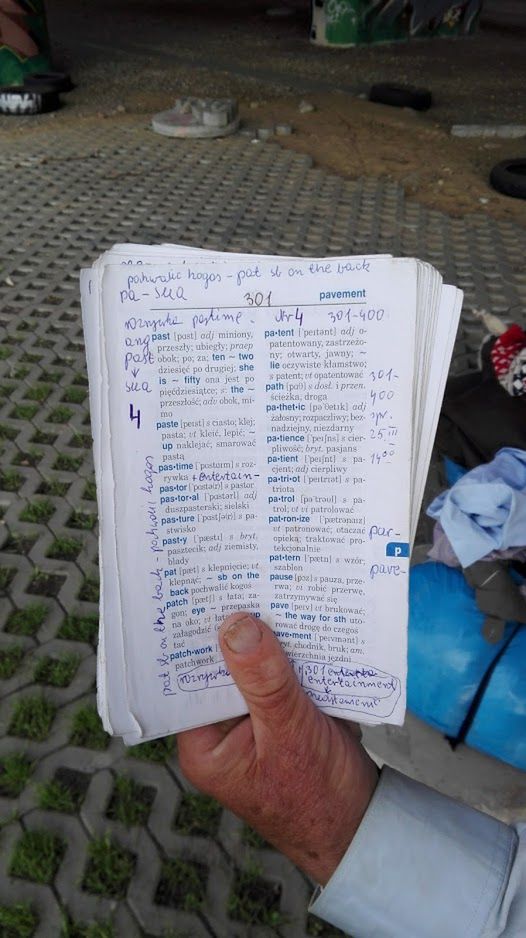 pochwalić kogoś - pat sb on the back
pa - sua
301
pavement
rozrywka pastime.
Nr 4 301-400
ang
past
sua
4
past [pɑst] adj miniony,
przeszły; ubiegły; praep
obok; po; za; ten ~ two
dziesięć po drugiej; she
is ~ fifty ona jest po
pięćdziesiątce; s the ~
przeszłość; adv obok, mi-
mo
paste [peɪst] s ciasto; klej;
pasta; vt kleić, lepić; ~
up naklejać; smarować
pastą
pas•time [ˈpɑstɑɪm] s roz-
rywka + entertain-
pas•tor [ˈpɑstə(r)] s pastor
pas•tor•al [ˈpɑstərl] adj
duszpasterski; sielski
pas•ture [ˈpɑstʃə(r)] s pa-
stwisko
past•y [ˈpæstɪ] s bryt.
pasztecik; adj ziemisty,
blady
pat [pæt] s klepnięcie; vt
klepnąć; ~ sb on the
back pochwalić kogoś
patch [pætʃ] s łata; za-
gon; eye ~ przepaska
na oko; vt łatać
załagodzić
tać
patch•work
patchwork
pat sb on the back - pochwalić kogoś
pa•tent [ˈpeɪtənt] adj o-
patentowany, zastrzeżo-
ny; otwarty, jawny; ~
lie oczywiste kłamstwo;
s patent; vt opatentować
path [pɑθ] s dosł. i przen.
ścieżka, droga
pa•thet•ic [pəˈθetɪk] adj
żałosny; rozpaczliwy; bez-
nadziejny, niezdarny
pa•tience [ˈpeɪʃns] s cier-
pliwość; bryt. pasjans
pa•tient [ˈpeɪʃnt] s pa-
cjent; adj cierpliwy
pa•tri•ot [ˈpeɪtrɪət] s pa-
triota
pa•trol [pəˈtrəʊl] s pa-
trol; vt vi patrolować
pat•ron•ize [ˈpætrənɑɪz]
vt patronować; otaczać
opieką; traktować pro-
tekcjonalnie
pat•tern [ˈpætn] s wzór;
szablon
pause [pɔz] s pauza, prze-
rwa; vi robić przerwę,
zatrzymywać się
pave [peɪv] vt brukować;
~ the way for sth uto-
rować drogę do czegoś
pave•ment [ˈpeɪvmənt] s
bryt. chodnik, bruk; am.
nawierzchnia jezdni
301-
400
25 III
14 00
par-
p
pave-
rozrywka 301
entertainment